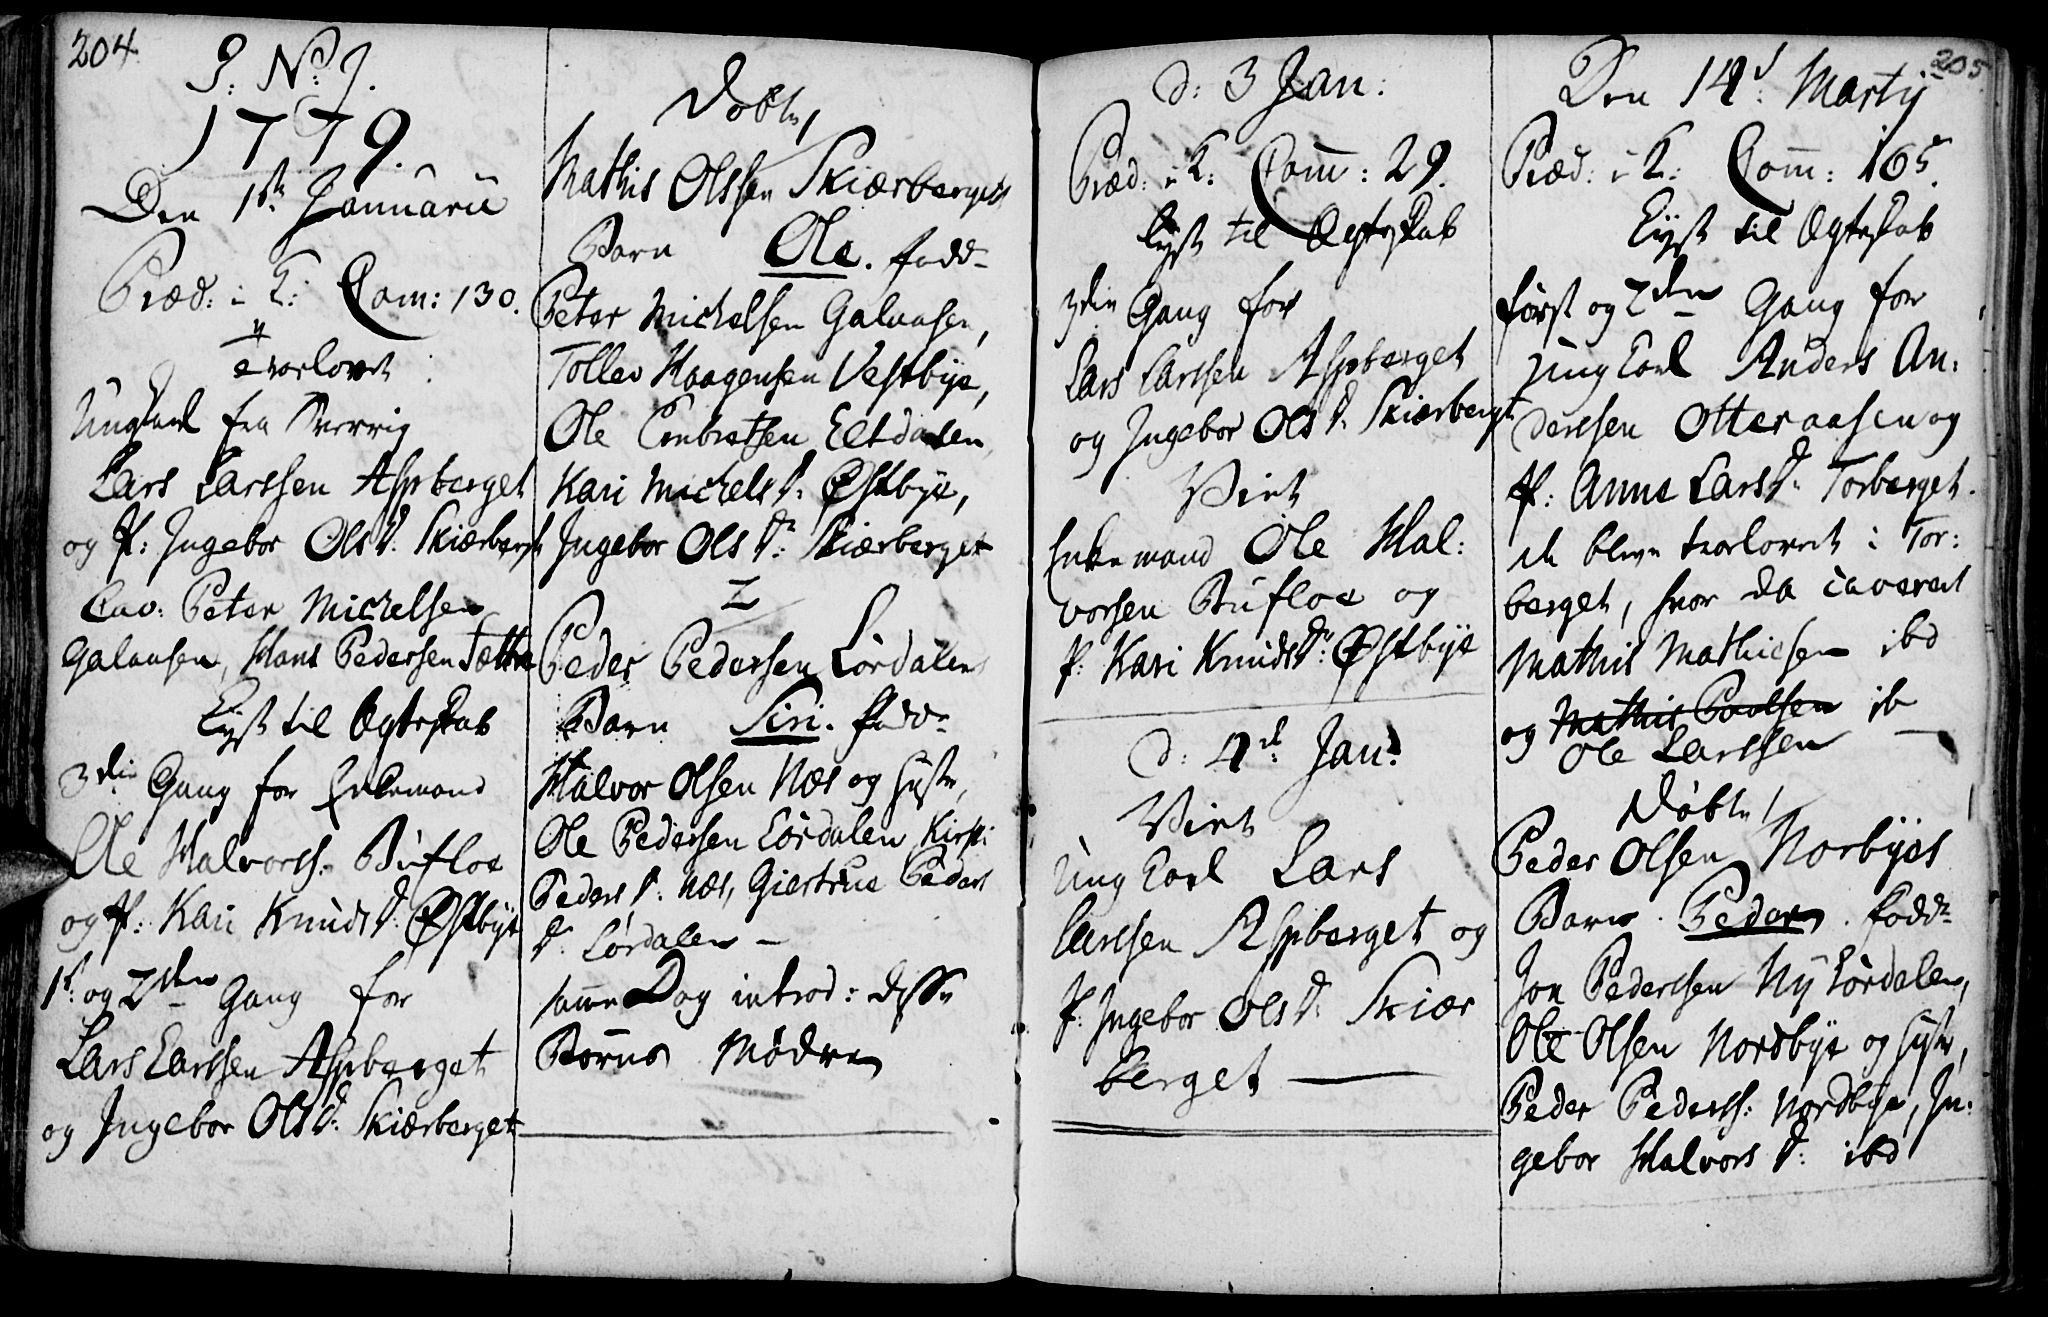 204
J: N: J.
1779.
Den 1ste Januarii
Præd: i T. Com: 130.
Trorlovet
Ungkarl fra Sverrig
Lars Larssen Aspberget
og P: Ingebor Ols D: Skiærberget
Cav: Peter Michelsen
Galaasen, Hans Pedersen Sættre
Lyst til Ægteskab
3die Gang for Enkemand
Ole Halvorss: Bufloe
og P: Kari Knuds D: Østbye
1st og 2den Gang for
Lars Larssen Aspberget
og Ingebor Ols D: Skiærberget
Døbte,
Mathis Olssen Skiærbergets
Barn Ole. Fadd-
Peter Michelsen Galaasen,
Tollev Haagensen Vestbye,
Ole Embretsen Eltdalen
Kari Michels D: Østbye,
Ingebor Ols D: Skiærberget
2
Peder Pedersen Lørdalens
Barn Siri. Fadd-
Halvor Olsen Næs og Hustr,
Ole Pedersen Lørdalen, Kirsti
Peders D: Næs, Giertrue Peders
D: Lørdalen -
samme Dag introd: disse
Børns Mødre
d: 3 Jan:
Præd: i T: Com: 29.
Lyst til Ægteskab
3die Gang for
Lars Larssen Aspberget
og Ingebor Ols D: Skiærberget
Viet
Enkemand Ole Hal:
vorsen Bufloe og
P: Kari Knuds D: Østbye
d: 4d Jan:
Viet
Ung Karl Lars
Larssen Aspberget og
P: Ingebor Ols D: Skiær
berget
205
Den 14d: Martij
Præd: i T: Com: 165.
Lyst til Ægteskab
først og 2den Gang for
ung Karl Anders An:
derssen Otteraasen og
P: Anne Lars D: Torberget.
de bleve trorlovet i Tor:
berget, hvor da caverede
Mathis Mathiesen ibd
og Mathis Paulsen ib
Ole Larssen
Døbte
Peder Olsen Norbyes
Barn. Peder. Fadd-
Jon Pederssen Ny Lørdalen,
Ole Olsen Nordbye og Hustr,
Peder Pederss: Nordbye, In:
gebor Halvors D: ibd